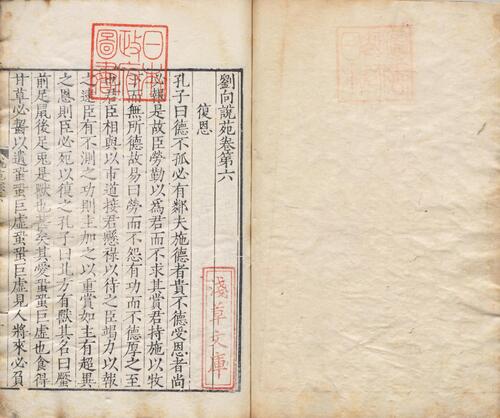 劉向說苑卷第六
復恩
孔子曰德不孤必有鄰夫施德者貴不德受恩者尚
必報是故臣勞勤以爲君而不求其賞君持施以牧
下而無所德故易曰勞而不怨有功而不德厚之至
也君臣相與以市道接君懸祿以待之臣竭力以報
之逮臣有不測之功則主加之以重賞如主有超異
之恩則臣必死以復之孔子曰北方有獸其名曰蟨
前足鼠後足兎是獸也甚矣其愛蛩蛩巨虛也食得
甘草必齧以遺蛩蛩巨虛蛩蛩巨虛見人將來必負
日本
政府
圖書
淺草文庫